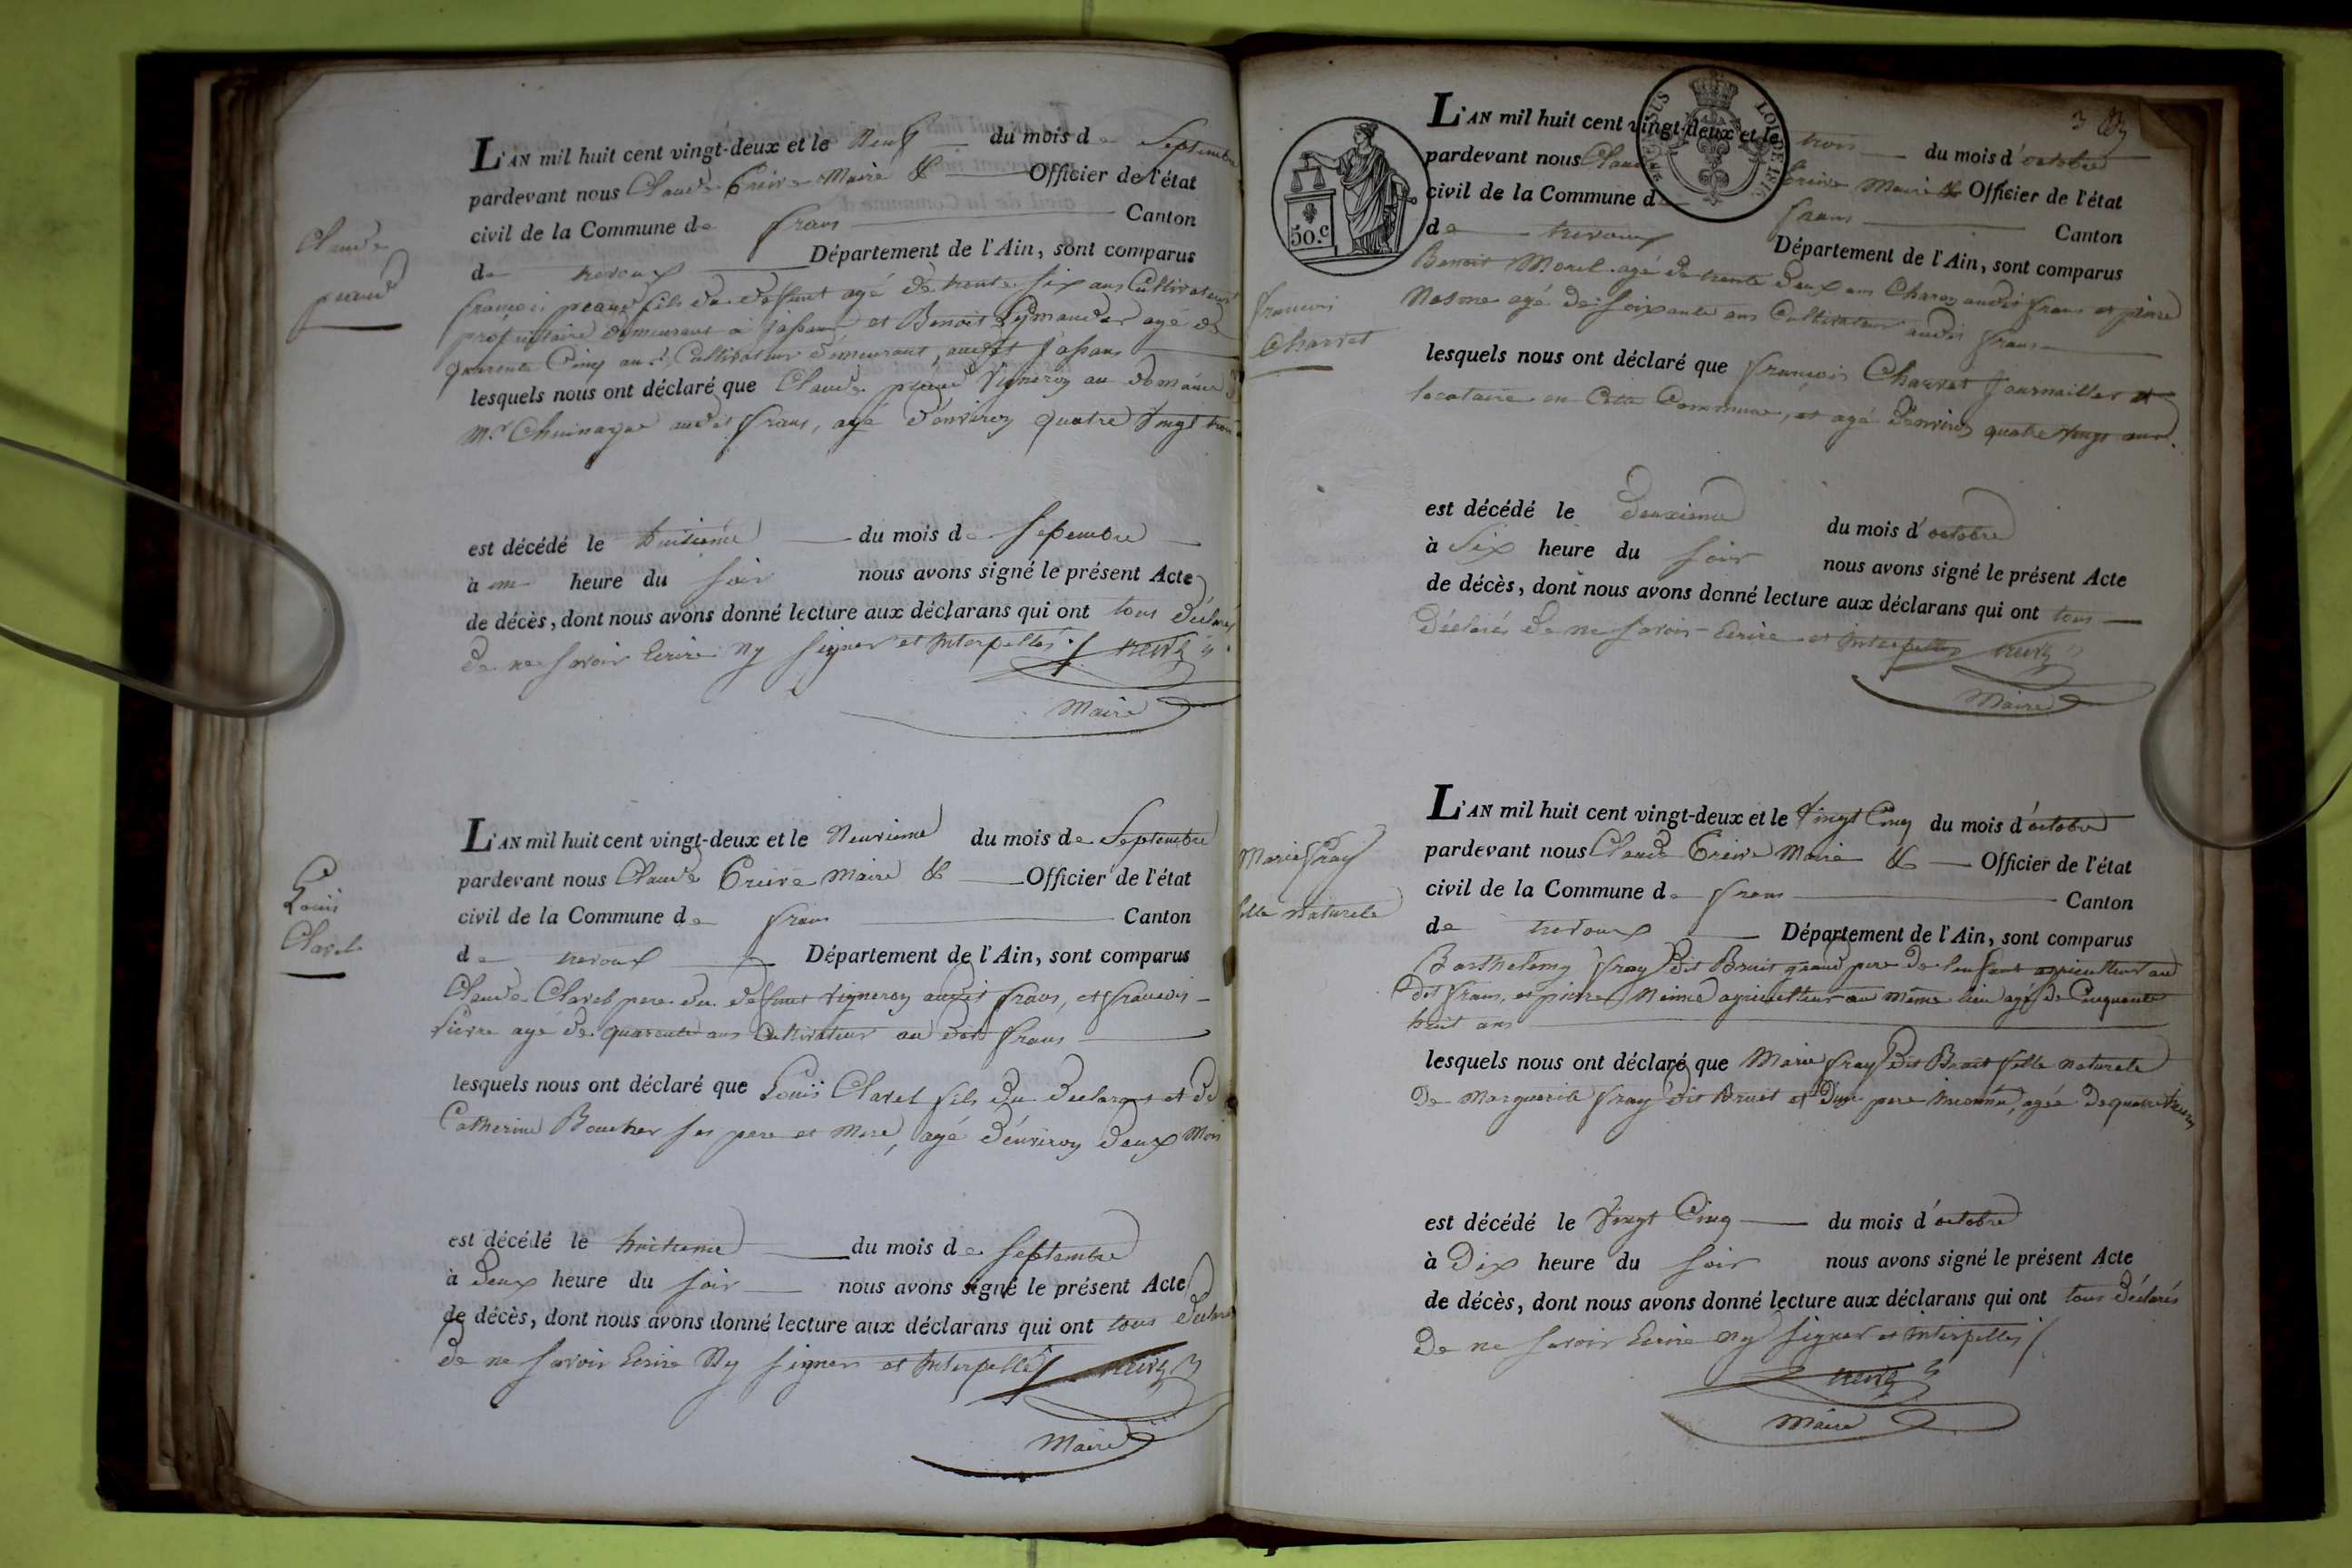 Claude
peaud
L'AN mil huit cent vingt-deux et le Neuf du mois de Septembre
pardevant nous Claude Greive Maire & Officier de l'état
civil de la Commune de frans Canton
de trevoux Département de l'Ain, sont comparus
françois peaud fils du defunt agé de trente six ans Cultivateur
proprietaire demeurant a jassans et Benoit agé de
quarente Cinq ans Cultivateur demeurant, audit jassans
lesquels nous ont déclaré que Claude peaud Vigneron au domaine
Mr audit frans, agé d'environ quatre Vingt trois
est décédé le huitième du mois de Sepembre
à une heure du soir nous avons signé le présent Acte
de décès, dont nous avons donné lecture aux déclarans qui ont tous déclarés
de ne savoir Ecrire Ny signer et Interpellés
Maire
Louis
Clavel
L'AN mil huit cent vingt-deux et le Neuvieme du mois de Septembre
pardevant nous Claude Greive Maire & Officier de l'état
civil de la Commune de frans Canton
de trevoux Département de l'Ain, sont comparus
Claude Clavel pere du defunt Vigneron audit frans, et francois
Pierre agé de quarente ans Cultivateur au dit frans
lesquels nous ont déclaré que Louis Clavel fils du Declarant et de
Catherine Boucher ses pere et Mere, agé d'environ deux Mois
est décédé le huitieme du mois de septembre
à deux heure du soir nous avons signé le présent Acte
de décès, dont nous avons donné lecture aux déclarans qui ont tous déclarés
de ne savoir Ecrire Ny signer et Interpellé
Maire
3
50.c
LOI DE 1816
francois
Charvet
L'AN mil huit cent vingt-deux et le trois du mois d'octobre
pardevant nous Claude Greive Maire & Officier de l'état
civil de la Commune de frans Canton
de trevoux Département de l'Ain, sont comparus
Benoit Morel agé de trente deux ans Charon audit frans et pierre
agé de soixante ans Cultivateur audit frans
lesquels nous ont déclaré que françois Charvet Journailler et
locataire en Cette Commune, et agé d'environ quatre vingt ans.
est décédé le deuxieme du mois d'octobre
à Six heure du soir nous avons signé le présent Acte
de décès, dont nous avons donné lecture aux déclarans qui ont tous
déclarés de ne savoir Ecrire et Interpellés
Maire
Marie fray
fille Naturele
L'AN mil huit cent vingt-deux et le Vingt Cinq du mois d'octobre
pardevant nous Claude Greive Maire & Officier de l'état
civil de la Commune de frans Canton
de trevoux Département de l'Ain, sont comparus
Barthelemy fray dit Bruit grand pere de l'enfant agriculteur au
dit frans, et pierre agriculteur au même lieu agé de Cinquante
huit ans
lesquels nous ont déclaré que Marie fray dit Bruit fille naturele
De Marguerite fray dit Bruit et D'un pere Inconnu, agée De quatre
est décédé le Vingt Cinq du mois d'octobre
à Dix heure du soir nous avons signé le présent Acte
de décès, dont nous avons donné lecture aux déclarans qui ont tous déclarés
De ne savoir Ecrire Ny signer et Interpellés
Maire